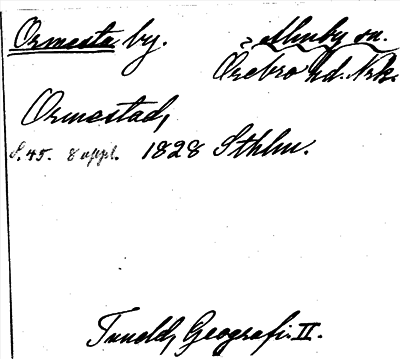 Ormesta by. Almby sn.
Örebro hd. Nrk.
Ormestad,
S. 45. 8 uppl. 1828 Sthlm.
Tuneld, Geografi. II.